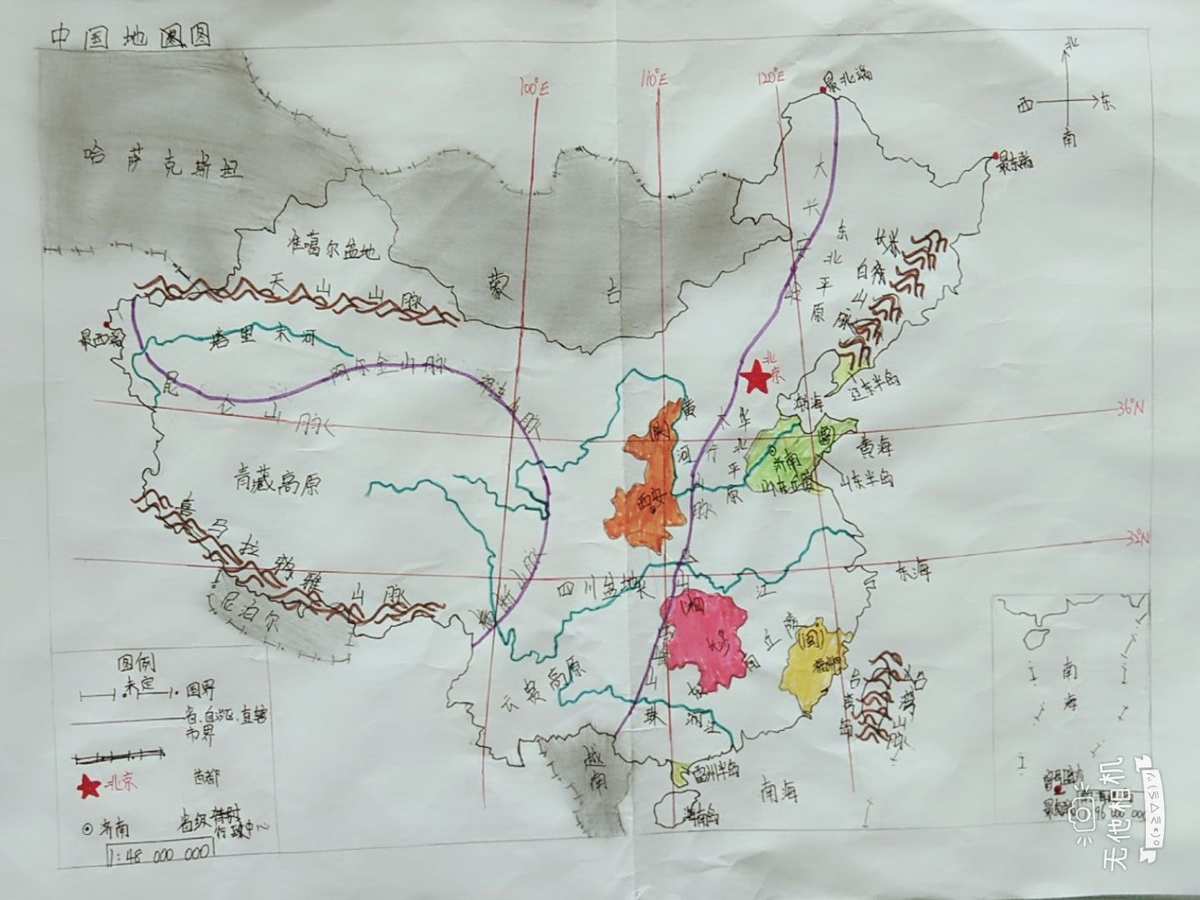 中国地图
100°E
110°E
120°E
最北端
北
西
东
南
最东端
哈萨克斯坦
准噶尔盆地
蒙古
大兴安
东北平原
长白山脉
天山山脉
塔里木河
最西端
昆仑山脉
阿尔金山脉
祁连山脉
北京
辽东半岛
渤海
36°N
黄河
(陕)
西安
太行山脉
华北平原
(鲁)
济南
山东丘陵
黄海
山东半岛
青藏高原
喜马拉雅山脉
尼泊尔
横断山脉
四川盆地
长江
32°N
东海
(湘)
长沙
(闽)
福州
云贵高原
台湾岛
台湾山脉
珠江
越南
雷州半岛
海南岛
南海
南海
图例
未定
国界
省、自治区、直辖
市界
北京
首都
济南
省级
行政中心
1:48 000 000
无他相机